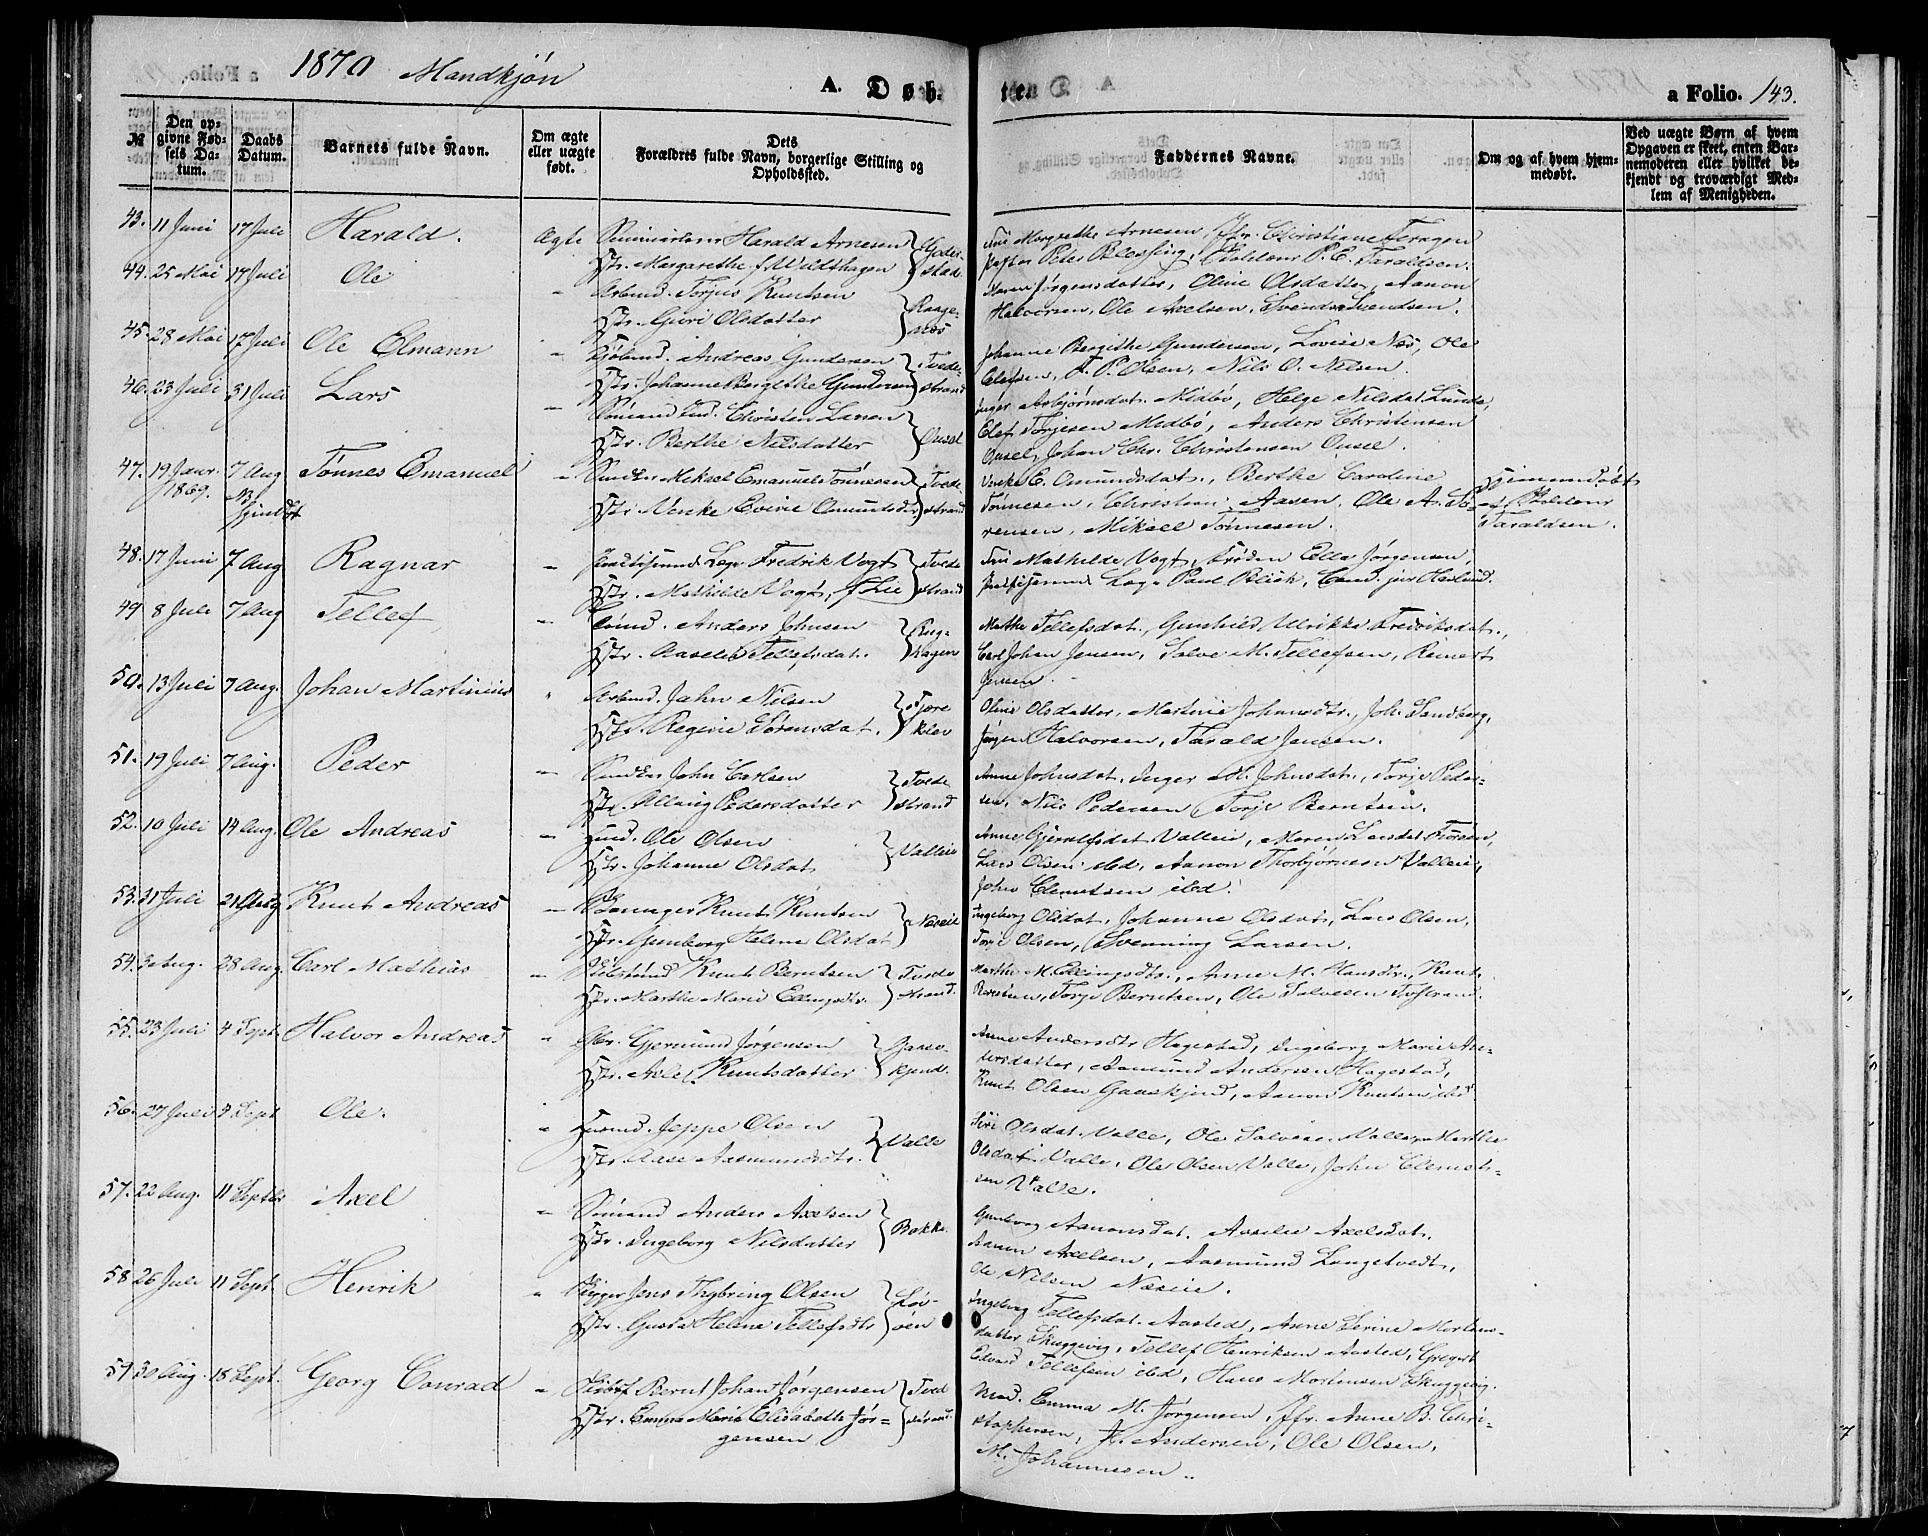 1870 Mandkjøn
A. Døbte.
a Folio. 143.
№
Den opgivne Fødsels Datum.
Daabs Datum.
Barnets fulde Navn.
Om ægte eller uægte født.
Dets Forældres fulde Navn, borgerlige Stilling og Opholdssted.
Faddernes Navne.
Om og af hvem hjemmedøbt.
Ved uægte Børn af hvem Opgaven er skeet, enten Barnemoderen eller hvilket bekjendt og troværdigt Medlem af Menigheden.
43. 11 Juni 17 Juli Harald. Ægte Harald Arnesen
Hstr. Margarethe f. Wildthagen
Fru Margrethe Arnesen, Jfr. Christiane Feragen
Pastor Peter Blessing, P. C. Taraldsen.
44. 25 Mai 17 Juli Ole " Arbmd. Torjus Knutsen
Hstr. Guri Olsdatter
Maren Jørgensdatter, Oline Olsdatter, Aanon
Halvorsen, Ole Axelsen, Svend Svendsen.
45. 28 Mai 17 Juli Ole Elmann " Andreas Gundersen Tvede-
Hstr. Johanne Bergithe Gundersen strand
Johanne Bergithe Gundersen, Lovise Næs, Ole
Olefsen, A. P. Olsen, Nils O. Nilsen.
46. 23 Juli 31 Juli Lars " Sømand Christen Larsen
Hstr. Berthe Nilsdatter Ousel
Inger Asbjørnsdat. Midbø, Helge Nilsdat. Lunde,
Olef Torjesen Midbø, Anders Christensen
Ousel, Johan Chr. Christensen Ousel.
47. 19 Janr. 1869. 7 Aug Tønnes Emanuel " Mikael Emanuel Tønnesen Tvede-
Hstr. Venke Evine Omundsdtr strand
Venke E. Omundsdat., Berthe Caroline
Tønnesen, Christian Aasen, Ole A. Sø-
rensen, Mikael Tønnesen.
Hjemmedøbt
af
Taraldsen.
48. 17 Juni 7 Aug Ragnar " Fredrik Vogt Tvede-
Hstr. Mathilde Vogt, f. Lie strand
Fru Mathilde Vogt, Frøken Ella Jørgensen,
Læge Paul Blich, Cand. jur Haslund.
49 8 Juli 7 Aug Tellef " Sømd. Anders Johnsen
Hstr. Aaselie Tellefsdat.
Marthe Tellefsdat., Gunhild Ulrikke Fredriksdat.,
Carl Johan Jensen, Salve M. Tellefsen, Reinert
Jensen.
50. 13 Juli 7 Aug. Johan Martinius " Arbmd. Jahn Nilsen Fjære
Hstr. Regine Sørensdat. klev
Oline Olsdatter, Martine Johansdtr., Joh. Sandberg,
Jørgen Halvorsen, Tarald Jensen.
51. 19 Juli 7 Aug. Peder " John Carlsen Tvede
Hstr. Pedersdatter strand
Anne Johnsdat. Inger M. Johnsdat., Torje Peder-
sen, Nils Pedersen Torje Berntsen.
52. 10 Juli 14 Aug. Ole Andreas " Ole Olsen
Hstr. Johanne Olsdat Valleie
Anne Gjerulfsdat Valleie, Maren Larsdat.
Lars Olsen ibd, Aanon Thorbjørnsen Valleie,
John Clemetsen ibd.
53. 31 Juli 21 Aug Knut Andreas " Knut Knutsen
Hstr. Gunborg Helene Olsdat Næseie
Ingeborg Olsdat, Johanne Olsdat., Lars Olsen,
Torje Olsen, Svenning Larsen.
54. 3 Aug. 28 Aug. Carl Mathias " Knut Berntsen Tvede-
Hstr. Marthe Marie Ellingsdtr. strand.
Marthe M. Ellingsdtr., Anne M. Hansdtr., Knut
Berntsen, Torje Berntsen, Ole Salvesen
55. 23 Juli 4 Sept. Halvor Andreas " Gbr. Gjermund Jørgensen Gaase-
Hstr. Knutsdatter kjend.
Anne Andersdtr Hagestad, Ingeborg Marie An-
dersdatter, Aasmund Andersen Hagestad,
Knut Olsen Gaaskjend, Aanon Knutsen ibd
56. 27 Juli 4 Sept Ole. " Jeppe Olsen
Hstr Aase Aasmundsdtr. Valle
Siri Olsdat. Valle, Ole Salvesen Valle, Marthe
Olsdat Valle, Ole Olsen Valle, John Clemet-
sen Valle.
57. 22 Aug. 11 Septbr Axel " Sømand Anders Axelsen
Hstr. Ingeborg Nilsdatter Bakke
Gunborg Aanonsdat. Axelie Axelsdat.
Aanon Axelsen, Aasmund Langetvedt,
Ole Nilsen Næseie.
58. 26 Juli 11 Sept. Henrik " Jens Thybring Olsen Løv-
Hstr. Gusta Helene Tellefsdtr øen
Ingeborg Tellefsdat. Aasted, Anne Serine Mortens-
datter Skuggevig, Tellef Henriksen Aasted, Gregert
Edvard Tellefsen ibd, Hans Mortensen Skuggevig.
59. 30 Aug. 18 Sept. Georg Conrad " Bernt Johan Jørgensen Tvede
Hstr. Emma Marie Elisabeth Jør- strand.
gensen
Mad. Emma M. Jørgensen, Jfr. Anne B. Chri-
stophersen, J. Andersen, Ole Olsen,
M. Johannesen.